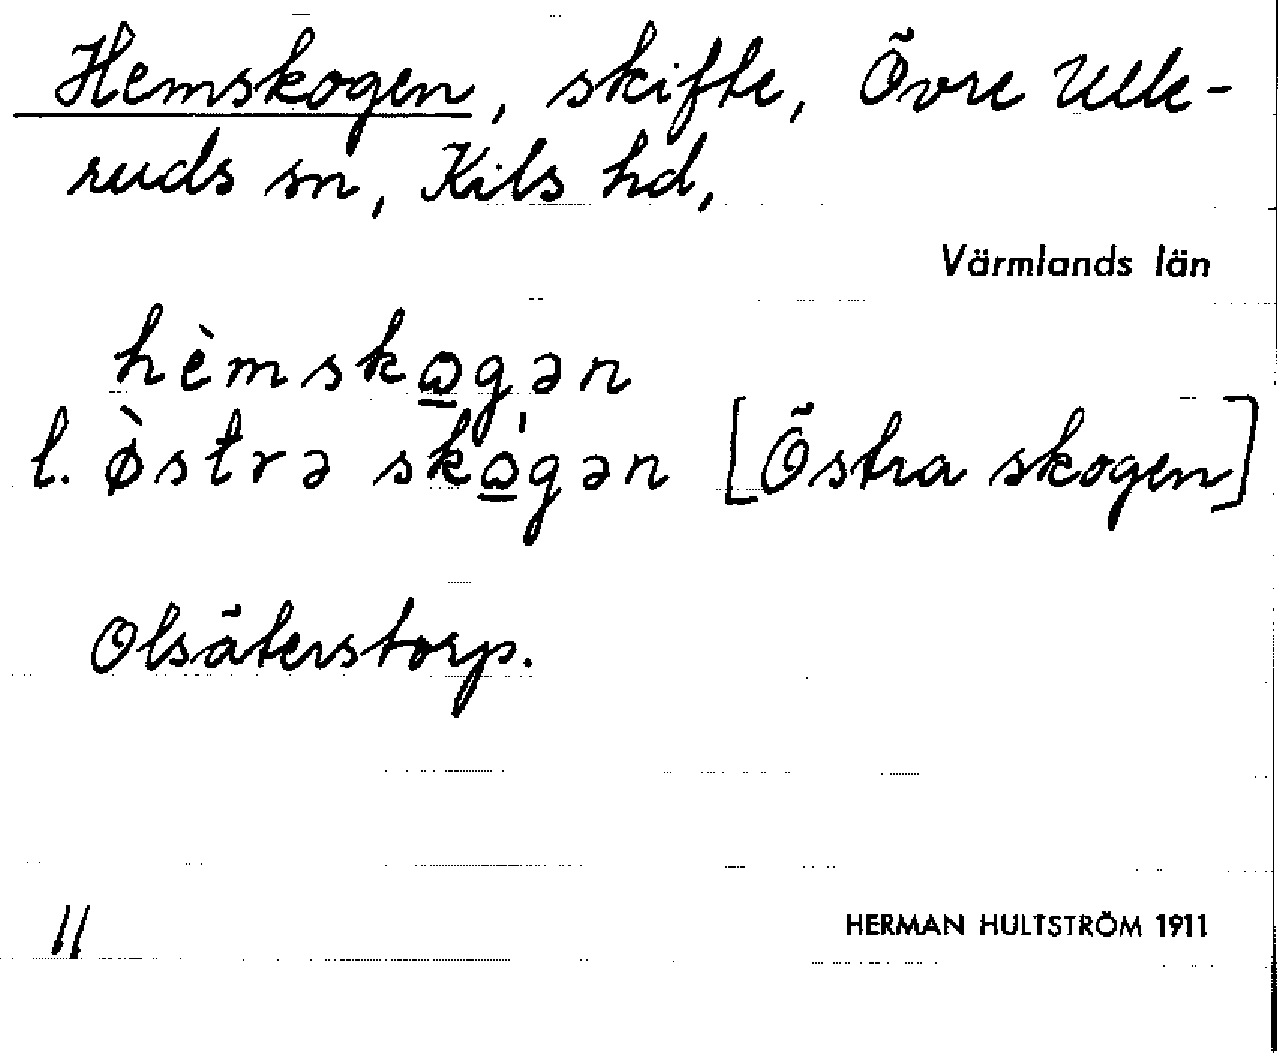 Hemskogen, skifte, Övre Ulle-
ruds sn, Kils hd,
Värmlands län
hèmskω̲gən
l. ø̀strə skώ̲gən [Östra skogen]
Olsäterstorp.
11
HERMAN HULTSTRÖM 1911